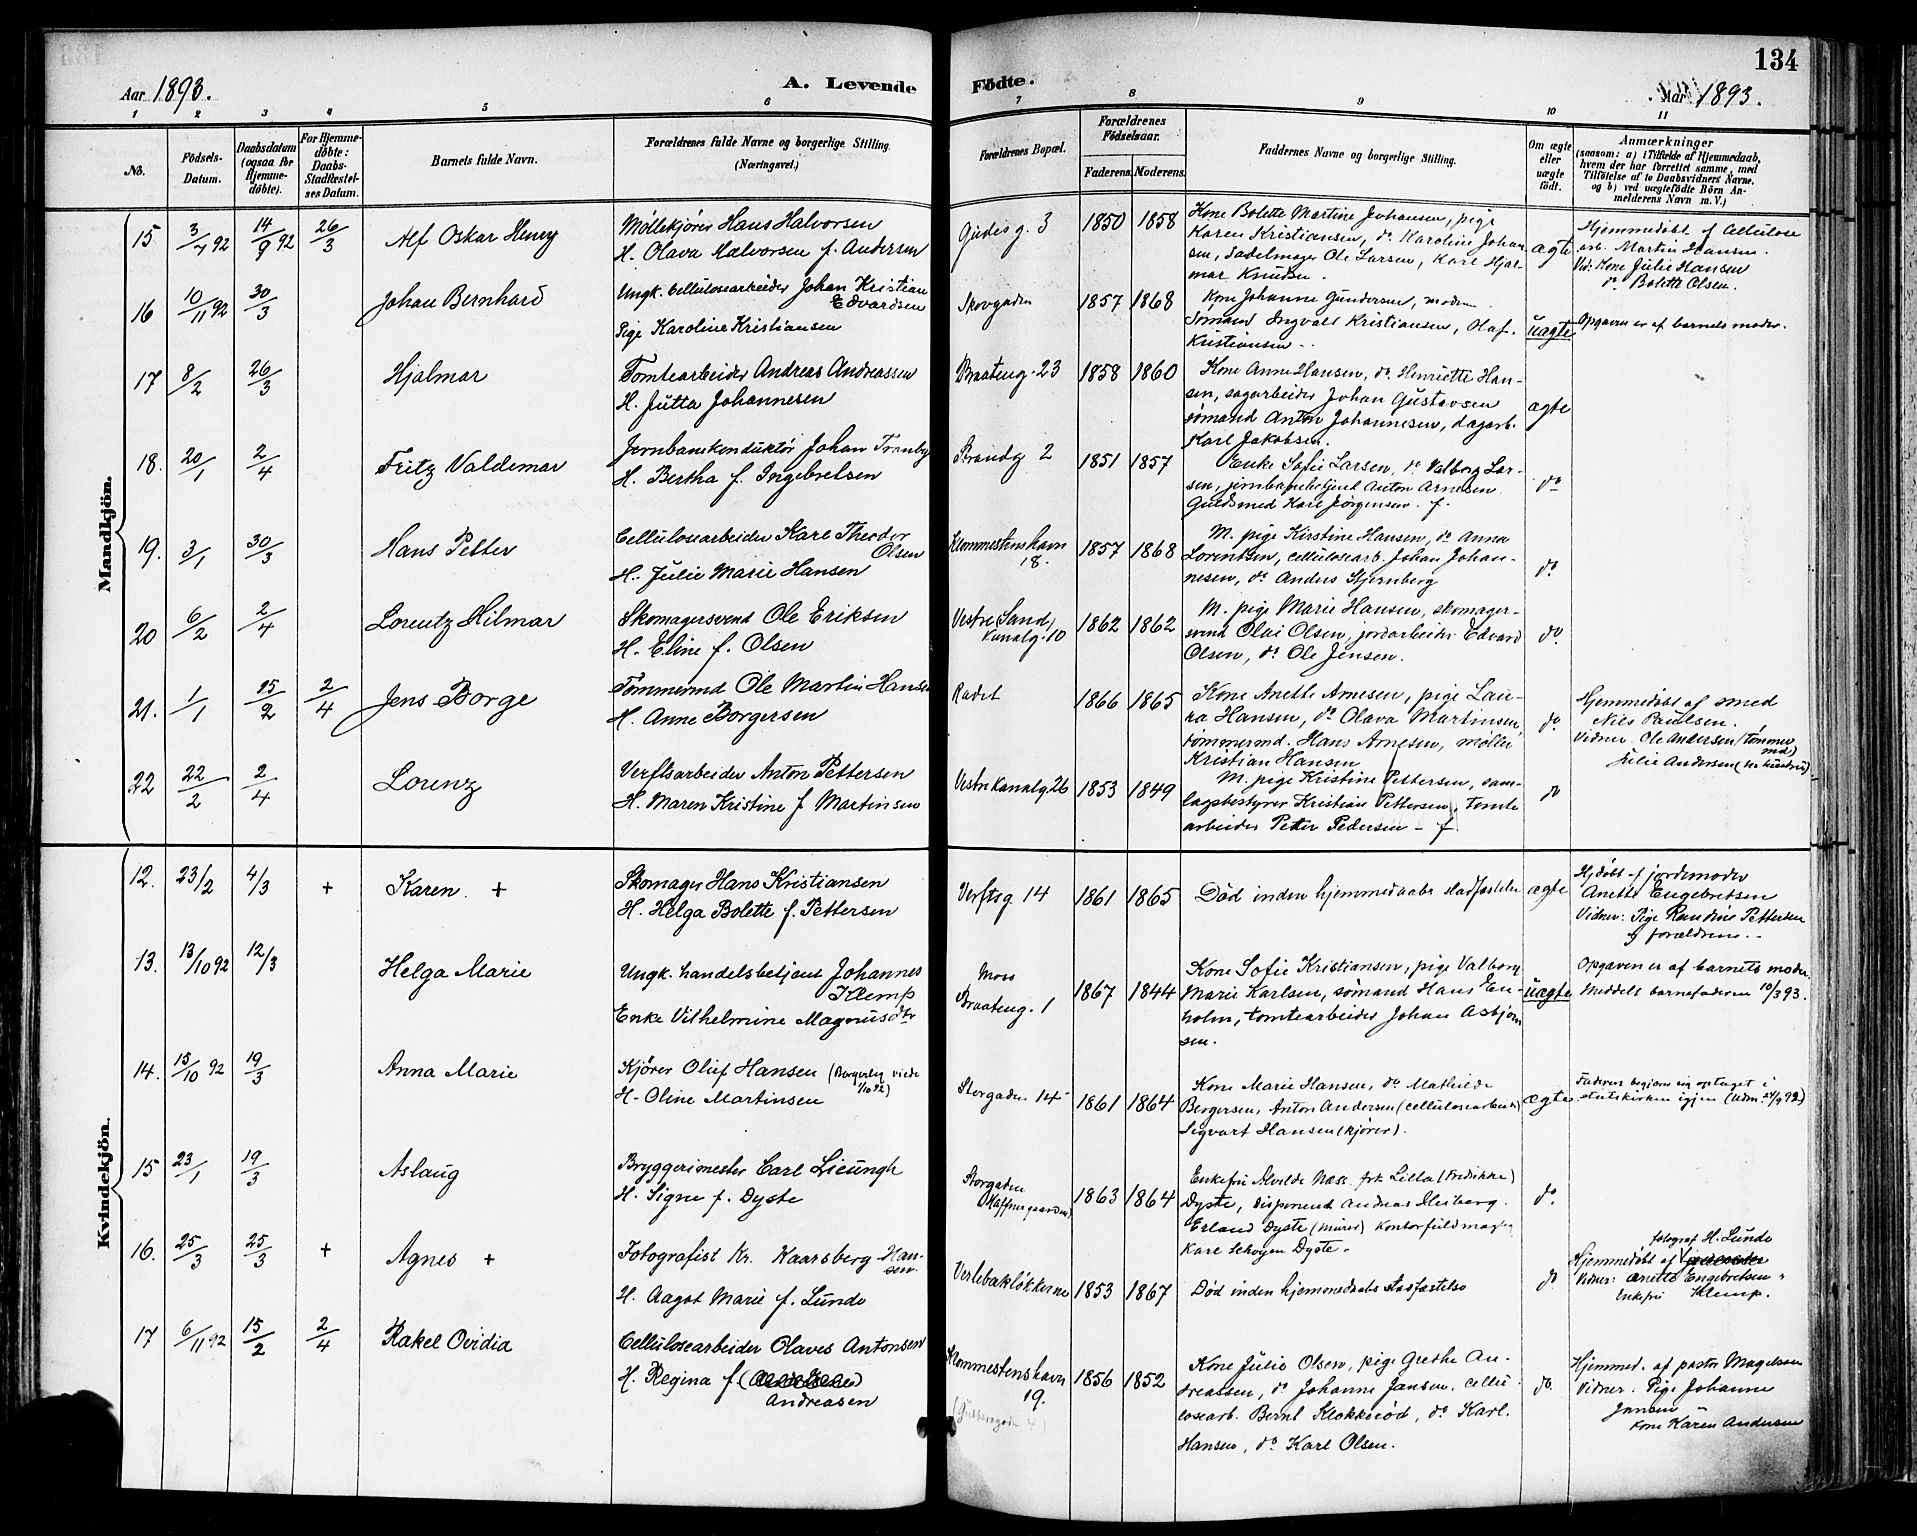 134
Aar 1893.
A. Levende
Födte.
Aar 1893.
1 2 3 4 5 6 7 8 9 10 11
No.
Födsels-
Datum.
Daabsdatum
(ogsaa for
Hjemme-
döbte).
For Hjemme-
döbte:
Daabs-
Stadfæstel-
ses Datum.
Barnets fulde Navn.
Forældrenes fulde Navne og borgerlige Stilling.
(Næringsvei.)
Forældrenes Bopæl.
Forældrenes
Födselsaar.
Faderens. Moderens.
Faddernes Navne og borgerlige Stilling.
Om ægte
eller
uægte
födt.
Anmærkninger
(saasom: a) i Tilfælde af Hjemmedaab,
hvem der har forrettet samme, med
Tilföielse af to Daabsvidners Navne,
og b) ved uægtefödte Börn An-
melderens Navn m. V.)
Mandkjön.
15 3/7 92 14/9 92 26/3 Alf Oskar Henry
Møllekjører Hans Halvorsen
H. Olava Halvorsen f. Andersen
Gudes g. 3 1850 1858
Kone Bolette Martine Johansen, pige
Karen Kristiansen, do Karoline Johan
sen, Sadelmager Ole Larsen, Karl Hjal-
mar Knudsen.
ægte
Hjemmedøbt af Cellulose
arb. Martin Hansen.
Vid: Kone Julie Hansen
do Bolette Olsen.
16 10/11 92 30/3 Johan Bernhard
Ungk. Cellulosearbeider Johan Kristian
Edvardsen
Pige Karoline Kristiansen
Skovgaden 1857 1868
Kone Johanne Gundersen, moderen.
Sømand Ingvald Kristiansen, Olaf.
Kristiansen..
uægte
Opgaven er af barnets moder.
17 8/2 26/3 Hjalmar
Tomtearbeider Andreas Andreassen
H. Jutta Johannesen
Braateng. 23 1858 1860
Kone Anne Hansen, do Henriette Han-
sen, sagarbeider Johan Gustavsen
sømand Anton Johannesen, dagarb.
Karl Jakobsen.
ægte
18. 20/1 2/4 Fritz Valdemar
Jernbanekonduktør Johan Tranby
H. Bertha f. Ingebretsen
Strandg 2 1851 1857
Enke Sofie Larsen, do Valborg Lar-
sen, jernbanebetjent Anton Arnesen
Guldsmed Karl Jørgensen. f.
do
19. 3/1 30/3 Hans Petter
Cellulosearbeider Karl Theodor
Olsen
H. Julie Marie Hansen
Klommestenshavn
18.
1857 1868
M. pige Kirstine Hansen, do Anna
Lorentsen, cellulosearb. Johan Johan-
nesen, do Anders Stjernberg
do.
20 6/2 2/4 Lorentz Hilmar
Skomagersvend Ole Eriksen
H. Eline f. Olsen
Vestre Sand,
Kanalg. 10
1862 1862
M. pige Marie Hansen, skomager-
svend Olai Olsen, jordarbeider Edvard
Olsen, do Ole Jensen.
do.
21. 1/1 15/2 2/4 Jens Borge
Tømmermd Ole Martin Hansen
H. Anne Borgersen
Rødet 1866 1865
Kone Anette Arnesen, pige Lau-
ra Hansen, do Olava Martinsen,
tømmermd. Hans Arnesen, møller
Kristian Hansen
do
Hjemmedøbt af smed
Nils Paulsen.
Vidner Ole Andersen (tømmer
md.)
Julie Andersen (hs hustru)
22 22/2 2/4 Lorenz
Verftsarbeider Anton Pettersen
H. Maren Kristine f Martinsen
Vestre Kanalg 26 1853 1849
M. pige Kristine Pettersen, sam-
lagsbestyrer Kristian Pettersen, tomte
arbeider Petter Pedersen - f
do
Kvindekjön.
12. 23/2 4/3 + Karen. +
Skomager Hans Kristiansen
H. Helga Bolette f. Pettersen
Verftsg 14 1861 1865
Død inden hjemmedaabs stadfæstelse
ægte
Hjdøbt af jordemoder
Anette Engebretsen
Vidner: Pige Randine Pettersen
og forældrene.-
13. 13/10 92 12/3 Helga Marie
Ungk. handelsbetjent Johannes
Klemp
Enke Vilhelmine Magnusdtr
Moss
Braateng. 1
1867 1844
Kone Sofie Kristiansen, pige Valborg
Marie Karlsen, sømand Hans En-
holm, tomtearbeider Johan Asbjørn
sen.
uægte
Opgaven er af barnets moder.
Meddelt barnefaderen 10/3 93.
14. 15/10 92 19/3 Anna Marie
Kjører Oluf Hansen (Borgerlig viede
1/10 92)
H. Oline Martinsen
Storgaden 14 1861 1864
Kone Marie Hansen, do Mathilde
Bergersen, Anton Andersen (cellulosearbeider)
Sigvart Hansen (kjører).
ægte
Faderen begjærer sig optaget i
statskirken igjen (Udm. 24/9 92)
15 23/1 19/3 Aslaug
Bryggerimester Carl Lieungh
H. Signe f. Dyste
Storgaden
(Haffnergaarden)
1863 1864
Enkefru Alvilde Næss. frk Lilla (Fredrikke)
Dyste, disponent Andreas Heiberg.
Erland Dyste (murer) kontorfuldmægtig
Karl Schøyen Dyste.
do.
16. 25/3 25/3 + Agnes +
Fotografist Kr. Kaarsberg Han-
sen.
H. Aagot Marie f. Lunde
Verlebakløkkerne 1853 1867
Død inden hjemmedaabs stadfæstelse
do
fotograf H. Lunde
Hjemmedøbt af
Vidner: Anette Engebretsen
Enkefru Klemp.
17 6/11 92 15/2 2/4 Rakel Ovidia
Cellulosearbeider Olaves Antonsen
H. Regina f
Andreasen
Klommestenshavn
19.
1856 1852
Kone Julie Olsen, pige Grethe An-
dreassen, do Johanne Jansen, cellu-
losearb. Bernt Klokkerød, do Karl.
Hansen, do Karl Olsen.
do.
Hjemmed. af pastor Magelssen
Vidner: Pige Johanne
Jansen
Kone Karen Andersen